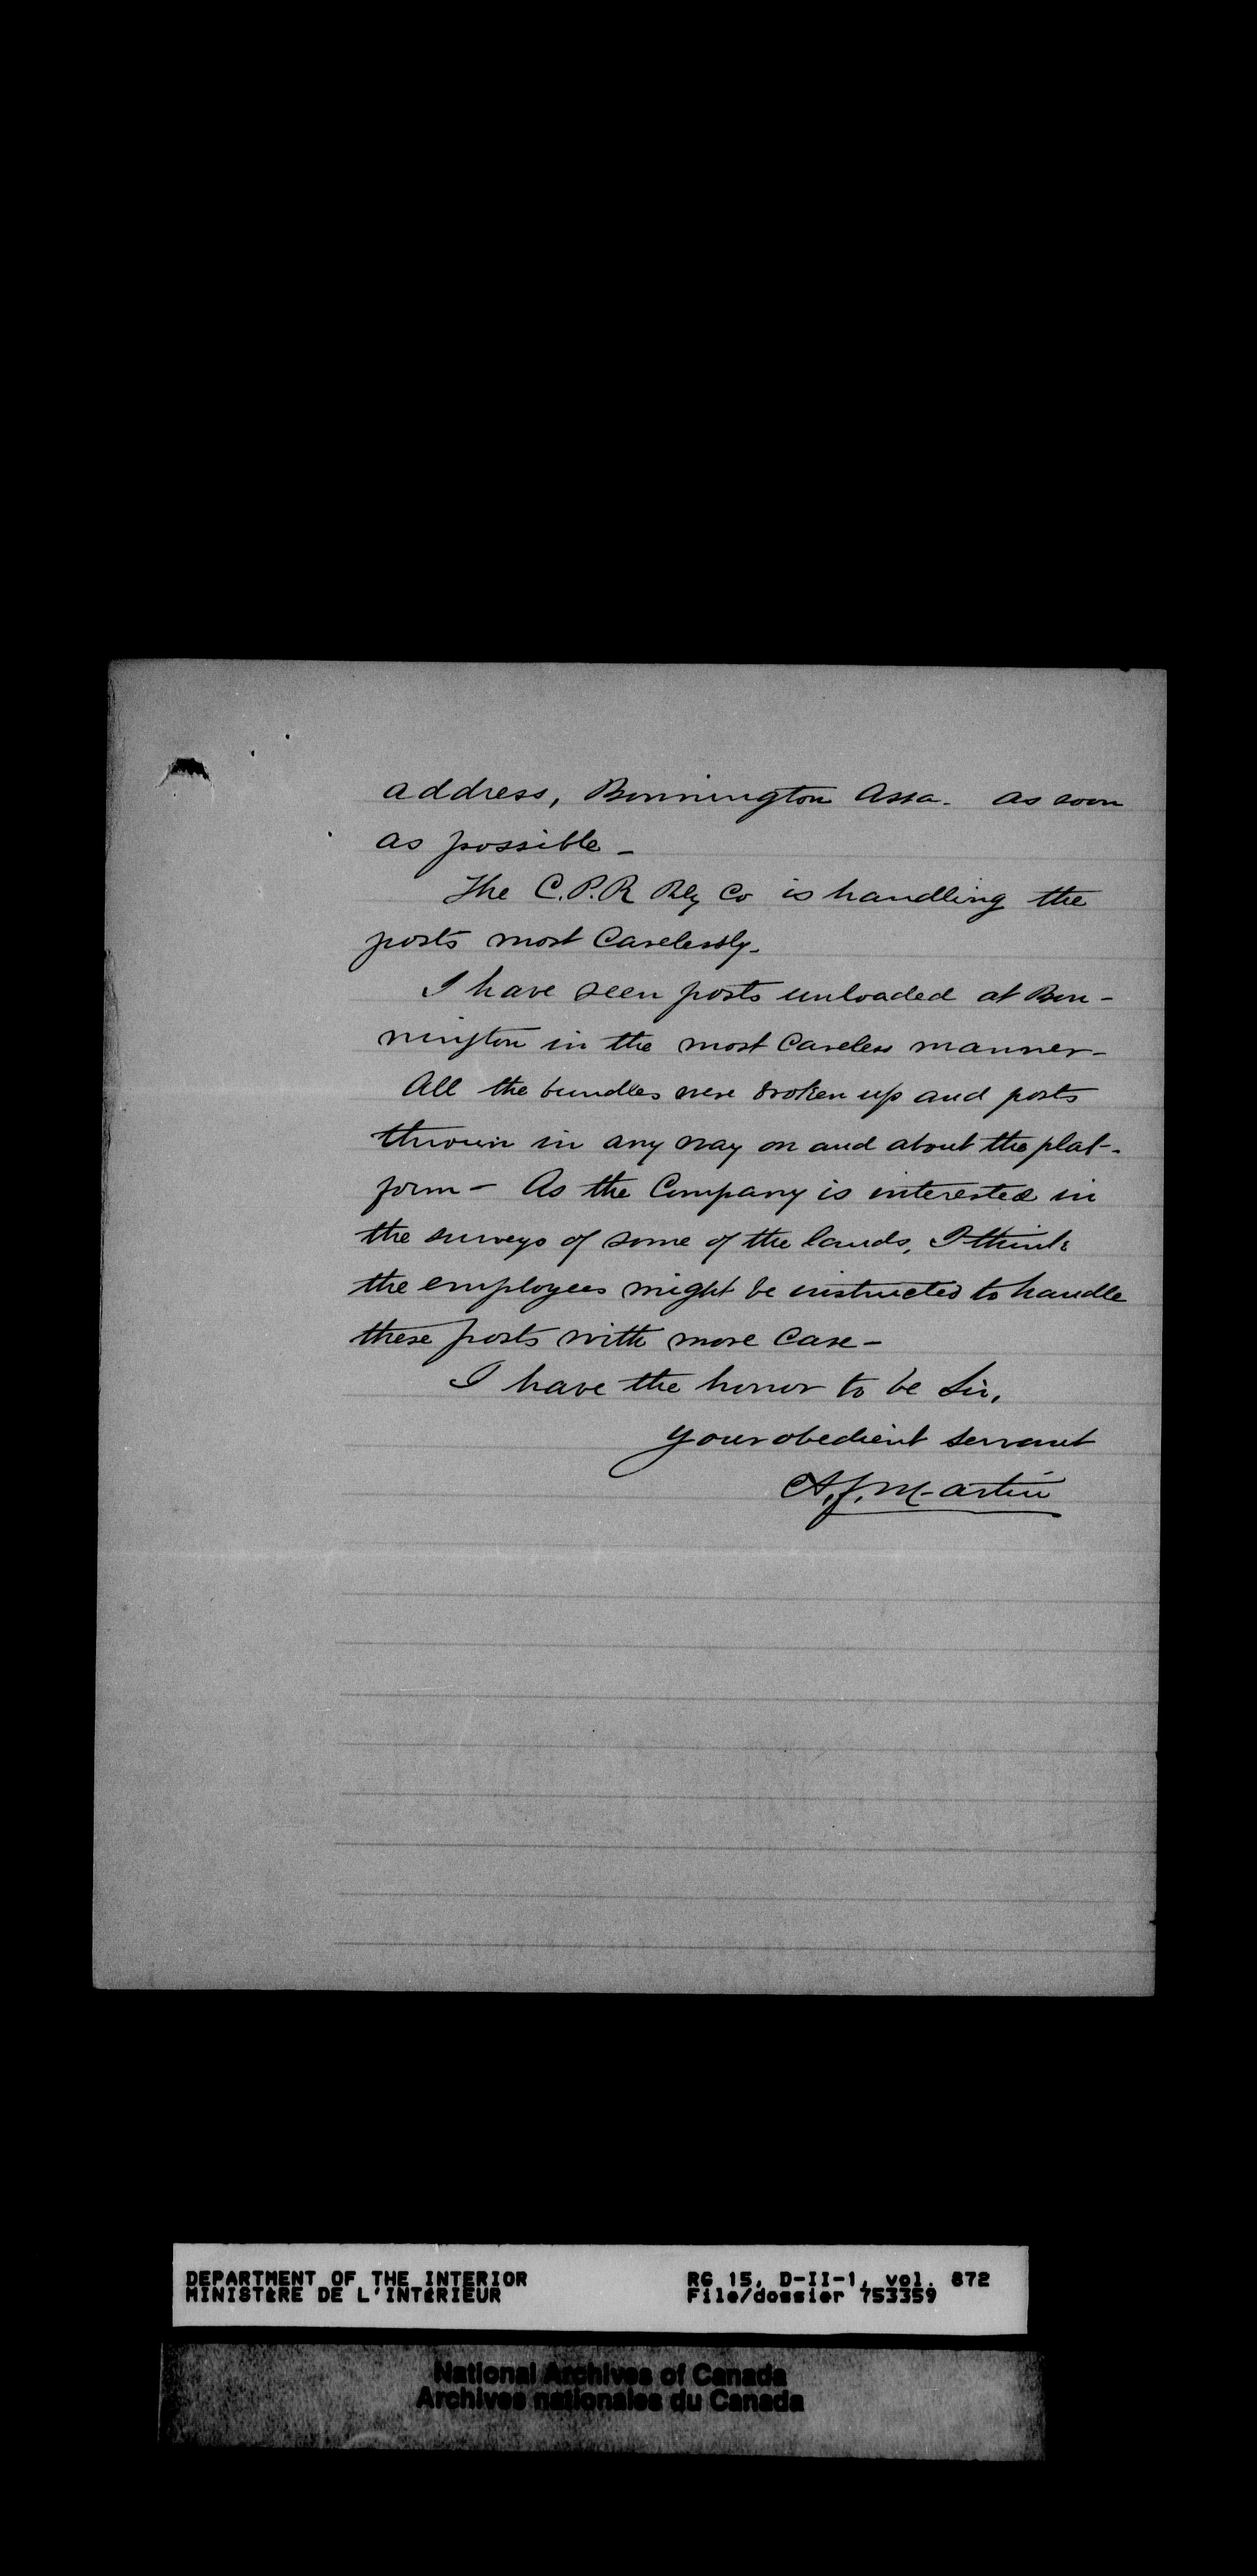 address, Bonnington Assa. as soon
as possible –
The C.P.R Rly Co is handling the
posts most Carelessly.
I have seen posts unloaded at Bon-
nington in the most Careless manner–
All the bundles were broken up and posts
thrown in any way on and about the plat-
form – As the Company is interested in
the surveys of some of the lands, I think
the employees might be instructed to handle
these posts with more Care –
I have the honor to be Sir,
your obedient servant
A.J. Martin
DEPARTMENT OF THE INTERIOR
MINISTÈRE DE L'INTÉRIEUR
RG 15, D-II-1, vol. 872
File/dossier 753359
National Archives of Canada
Archives nationales du Canada